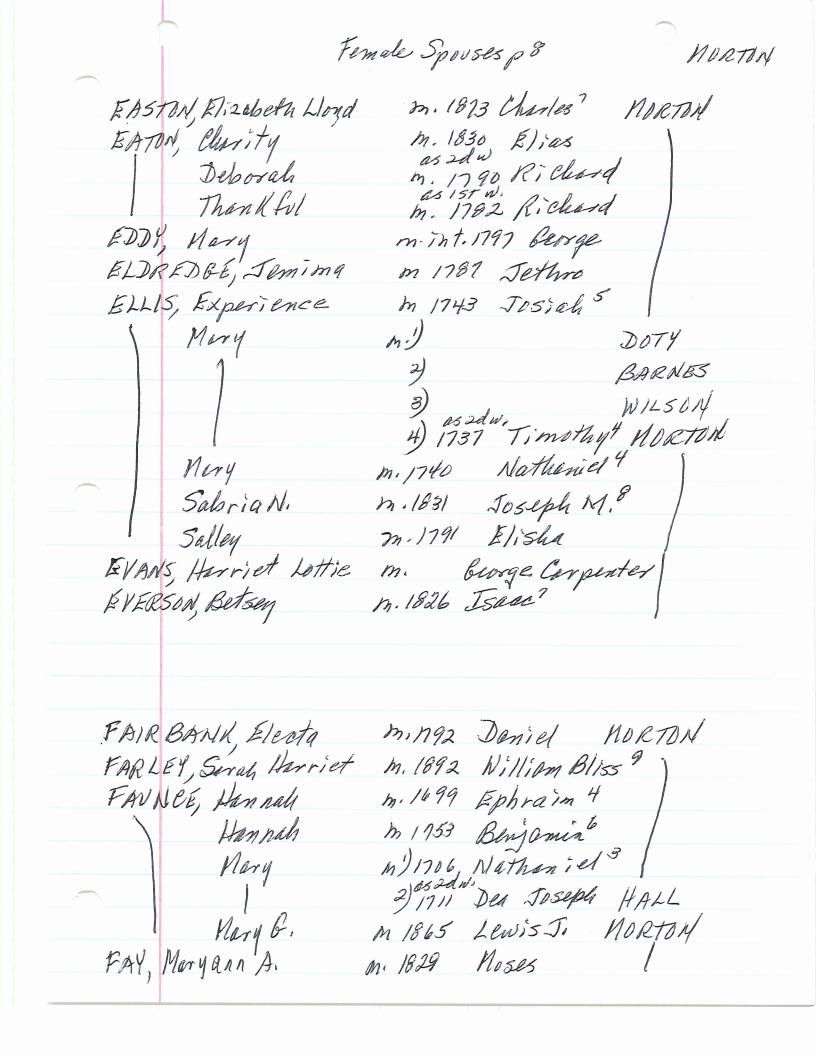 Female Spouses p 8 NORTON
EASTON, Elizabeth Lloyd m. 1873 Charles⁷ NORTON
EATON, Charity m. 1830 Elias
Deborah m. 1790 as 2d w Richard
Thankful m. 1782 as 1st w. Richard
EDDY, Mary m. int. 1797 George
ELDREDGE, Jemima m 1787 Jethro
ELLIS, Experience m 1743 Josiah⁵
Mary m. 1) DOTY
2) BARNES
3) WILSON
4) 1737 as 2d w. Timothy⁴ NORTON
Mary m. 1740 Nathaniel⁴
Sabria N. m. 1831 Joseph M.⁸
Salley m. 1791 Elisha
EVANS, Harriet Lottie m. George Carpenter
EVERSON, Betsey m. 1826 Isaac⁷
FAIRBANK, Electa m. 1792 Daniel NORTON
FARLEY, Sarah Harriet m. 1892 William Bliss⁹
FAUNCE, Hannah m. 1699 Ephraim⁴
Hannah m 1753 Benjamin⁶
Mary m 1) 1706, Nathaniel³
2) 1711 as 2d w. Dea Joseph HALL
Mary G. m 1865 Lewis J. NORTON
FAY, Maryann A. m. 1829 Moses